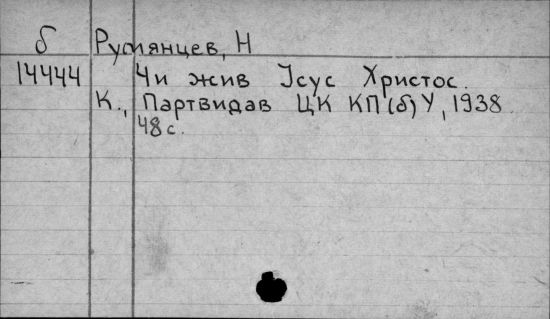 б Румянцев, Н
14444 Чи жив Ісус Христос.
К., Партвидав ЦК КП(б)У, 1938
48 с.